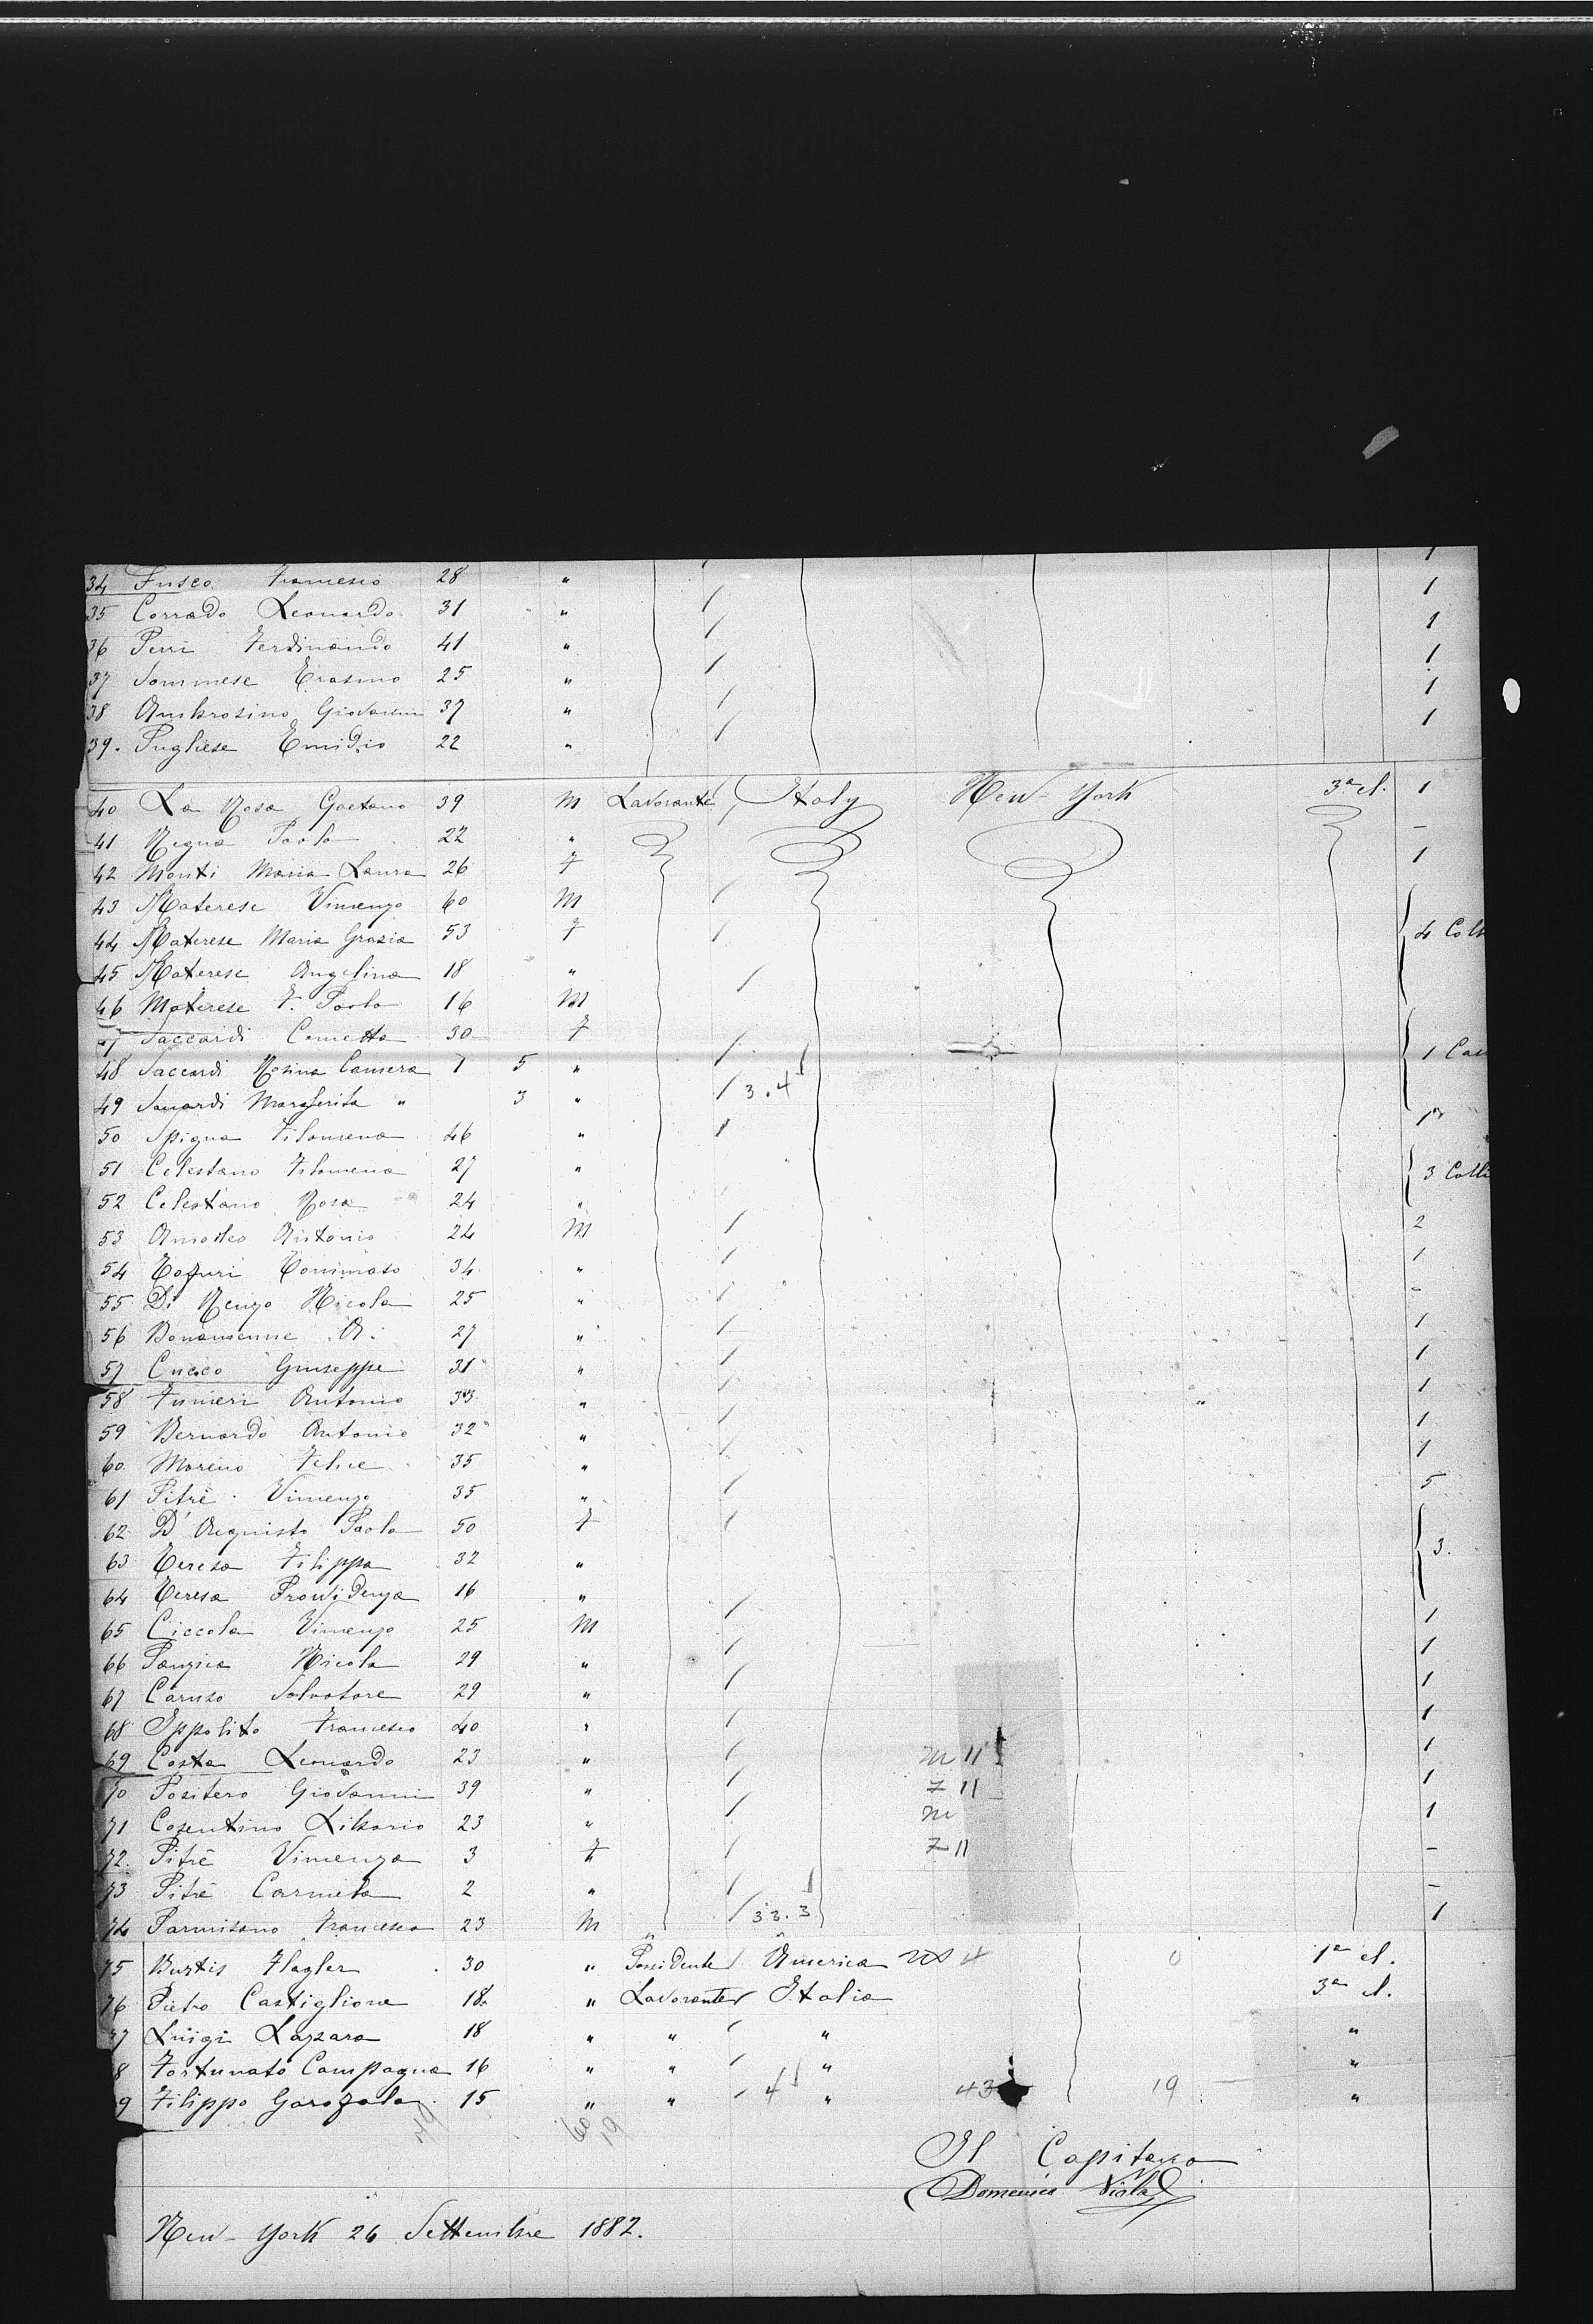 34 Fusco Francesco 28 " 1
35 Corrado Leonardo 31 " 1
36 Perri Ferdinando 41 " 1
37 Sommese Erasmo 25 " 1
38 Ambrosino Giovanni 37 " 1
39. Pugliese Emidio 22 " 1
40 La Rosa Gaetano 39 M Lavorante Italy New-York 3ª cl. 1
41 Regna Paolo 22 " -
42 Monti Maria Laura 26 F 1
43 Materese Vincenzo 60 M
44 Materese Maria Grazia 53 F 4 Coll
45 Materese Angelina 18 "
46 Materese F. Paolo 16 M
47 Saccardi Concetta 30 F
48 Saccardi Rosina 1 5 " 1
49 Saccardi Margherita " 3 " 3.4
50 Spigna Filomena 46 " 1
51 Celestano Filomena 27 " 3 Colli
52 Celestano Rosa 24 "
53 Amodeo Antonio 24 M 2
54 Tommaso 34 " 1
55 Di Renzo Nicola 25 " -
56 A. 27 " 1
57 Cucco Giuseppe 31 " 1
58 Funieri Antonio 33 " 1
59 Bernardo Antonio 32 " 1
60 Moreno Felice 35 " 1
61 Pitrè Vincenzo 35 " 5
62 D'Acquisto Paola 50 F
63 Teresa Filippa 32 " 3.
64 Teresa Providenza 16 "
65 Ciccola Vincenzo 25 M 1
66 Panzica Nicola 29 " 1
67 Caruso Salvatore 29 " 1
68 Ippolito Francesco 40 " 1
69 Costa Leonardo 23 " M 11 1
70 Positero Giovanni 39 " F 11 1
71 Cosentino Liborio 23 " M 1
72. Pitrè Vincenza 3 F F 11 -
73 Pitrè Carmela 2 " -
74 Parmisano Francesco 23 M 33.3 1
75 Burtis Flagler 30 " Possidente America 4 0 1ª cl.
76 Pietro Castiglione 18 " Lavorante Italia 3ª cl.
77 Luigi Lazzara 18 " " " "
8 Fortunato Campagna 16 " " " "
9 Filippo Garofalo 15 " " 4 " 43 19 "
79 60 19
Il Capitano
Domenico Viola
New-York 26 Settembre 1882.